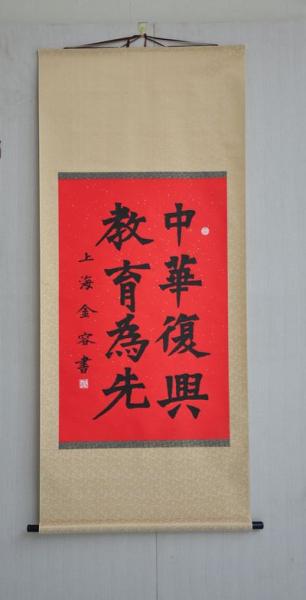 中華復興
教育為先
上海金容書